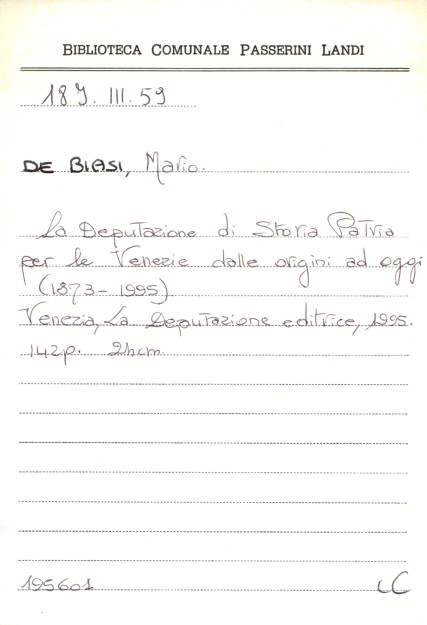 BIBLIOTECA COMUNALE PASSERINI LANDI
189. III. 59
DE BIASI, Mario.
La Deputazione di Storia Patria
per le Venezie dalle origini ad oggi
(1873-1995)
Venezia, La Deputazione editrice, 1995.
142p. 24cm
195601